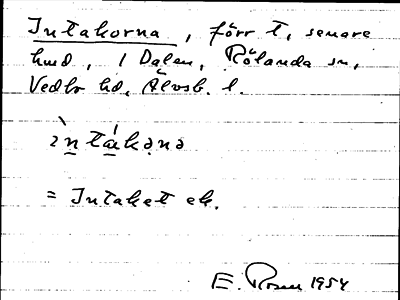 Intakorna, förr t, senare
hmd, i Dalen, Rölanda sn,
Vedbo hd, Älvsb. l.
= Intaket ek.
E. Rosen 1954